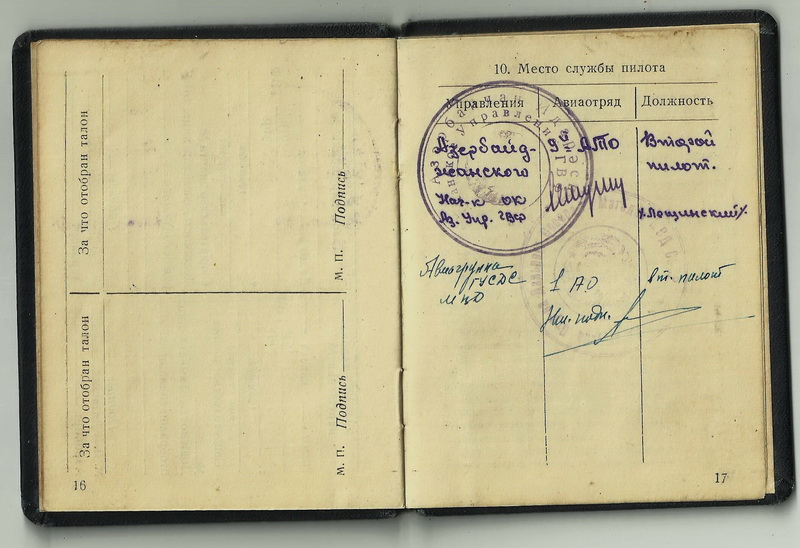 За что отобран талон
М. П. Подпись
За что отобран талон
М. П. Подпись
16
10. Место службы пилота
Управления Авиаотряд Должность
Азербайд- 9й АТО Второй
жанского пилот.
Нач-к ОК
Аз. Упр. ГВФ
/Лощинский/.
Авиагруппа
ГУСДС 1 АО вт. пилот
17